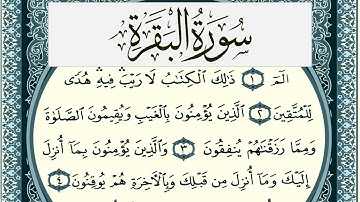 سُورَةُ الْبَقَرَةِ
الٓمٓ ١ ذَٰلِكَ الْكِتَٰبُ لَا رَيْبَ ۛ فِيهِ ۛ هُدًى
لِّلْمُتَّقِينَ ٢ الَّذِينَ يُؤْمِنُونَ بِالْغَيْبِ وَيُقِيمُونَ الصَّلَوٰةَ
وَمِمَّا رَزَقْنَٰهُمْ يُنفِقُونَ ٣ وَالَّذِينَ يُؤْمِنُونَ بِمَآ أُنزِلَ
إِلَيْكَ وَمَآ أُنزِلَ مِن قَبْلِكَ وَبِالْأٓخِرَةِ هُمْ يُوقِنُونَ ٤